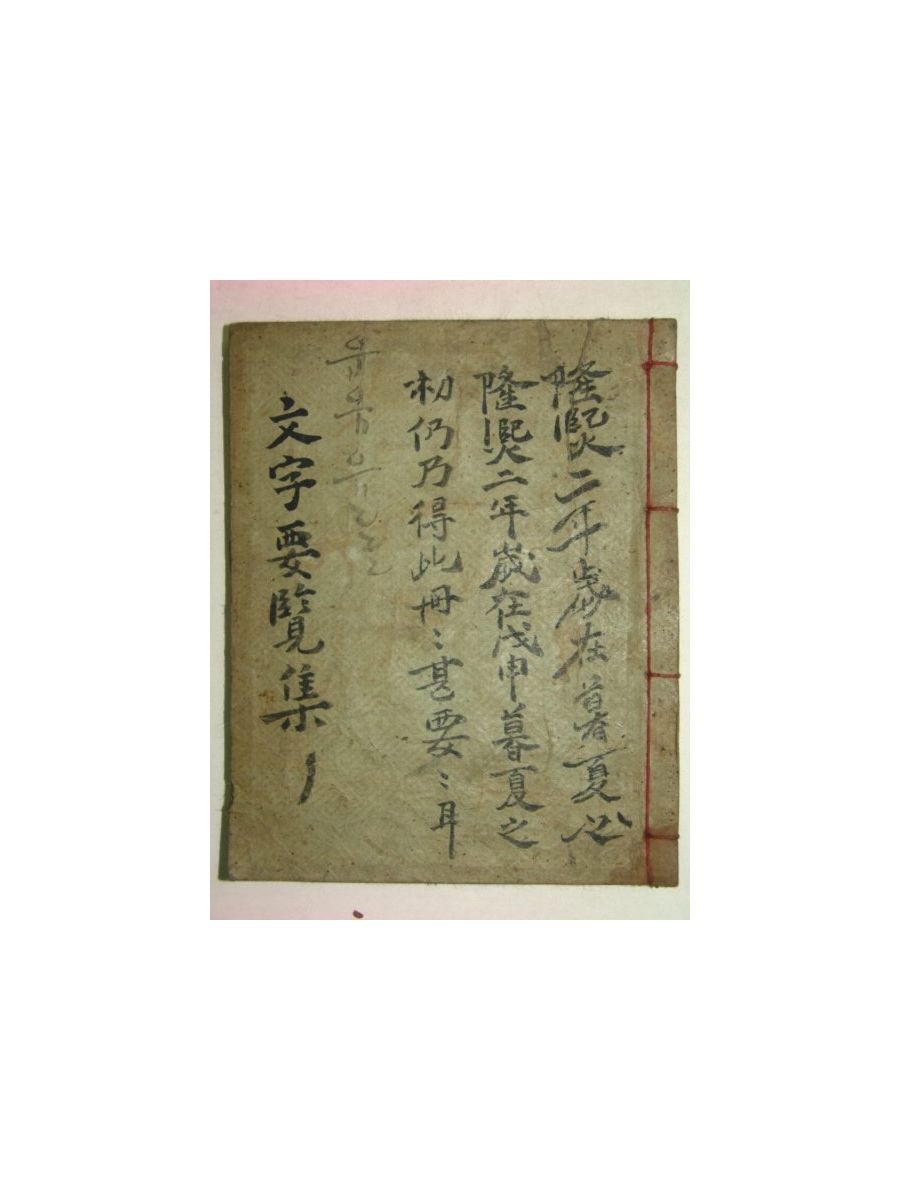 隆熙二年歲在暑夏
隆熙二年歲在戊申暮夏之
初仍乃得此冊〻甚要〻耳
유유유
文字要覽集